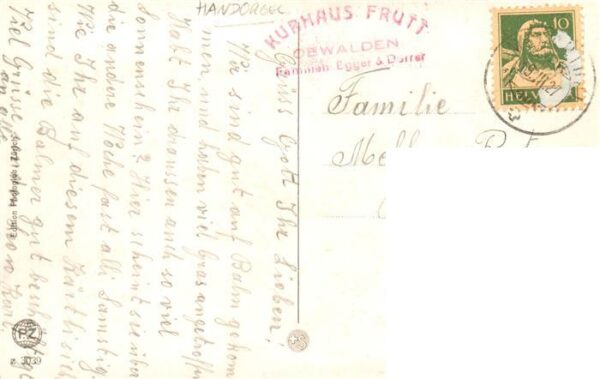 HANDORGEL
KURHAUS FRUTT
OBWALDEN
Familien Egger & Durrer
10
HELVETIA
Familie
Grüss Gott Ihr Lieben!
Wir sind gut auf Balm gekom
men, und haben viel Gras angetroffen
Habt Ihr draussen auch so viel
Sonnenschein? Hier scheint sie über
die andere Woche fast alli Samstig.
Wie Ihr auf diesem Kärtli sieht
sind die Balmer gut beschäftigt
Viel Grüsse
an alle
Edition Photoglob, Zürich
PZ
3039